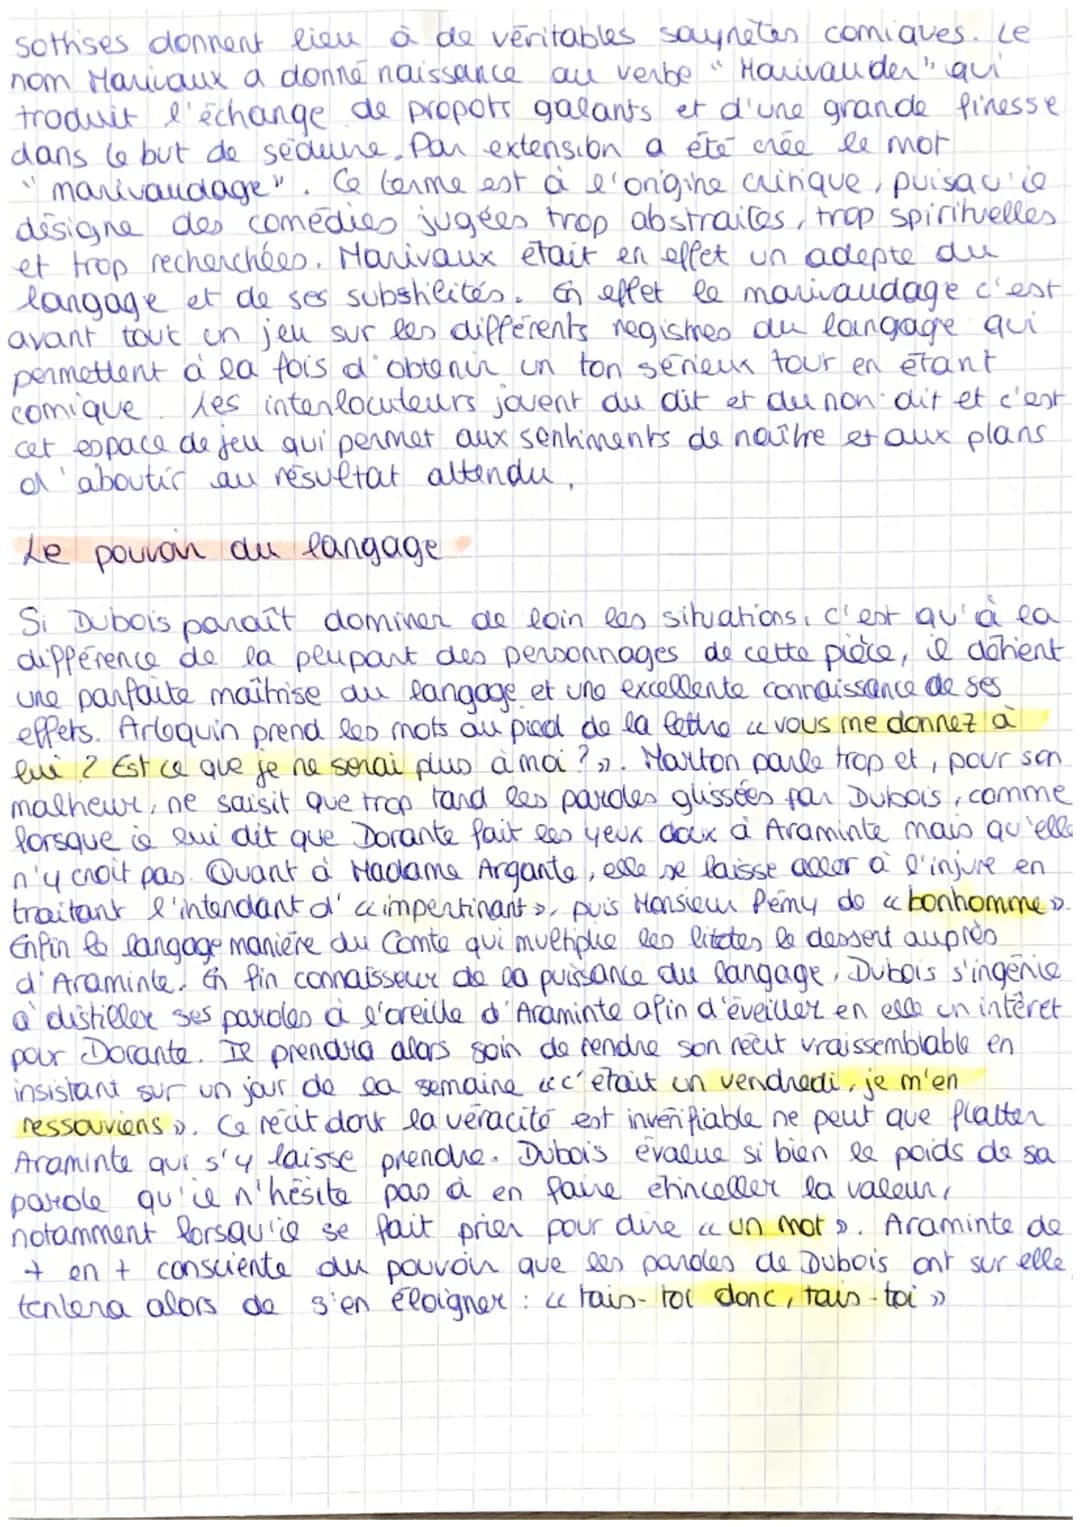 sottises donnent lieu à de véritables saynètes comiques. Le
nom Marivaux a donné naissance au verbe "Marivauder" qui
traduit l'échange de propots galants et d'une grande finesse
dans le but de séduire. Par extension a été crée le mot
"marivaudage". Ce terme est à l'origine critique, puisqu'il
désigne des comédies jugées trop abstraites, trop spirituelles
et trop recherchées. Marivaux était en effet un adepte du
langage et de ses substilités. En effet le marivaudage c'est
avant tout un jeu sur les différents registres du langage qui
permettent à la fois d'obtenir un ton sérieux tout en étant
comique. Les interlocuteurs jouent du dit et du non-dit et c'est
cet espace de jeu qui permet aux sentiments de naître et aux plans
d'aboutir au résultat attendu.
Le pouvoir du langage
Si Dubois paraît dominer de loin les situations, c'est qu'à la
différence de la plupart des personnages de cette pièce, il détient
une parfaite maîtrise du langage et une excellente connaissance de ses
effets. Arlequin prend les mots au pied de la lettre « vous me donnez à
lui ? Est ce que je ne serai plus à moi ? ». Marton parle trop et, pour son
malheur, ne saisit que trop tard les paroles glissées par Dubois, comme
lorsque il lui dit que Dorante fait les yeux doux à Araminte mais qu'elle
n'y croit pas. Quant à Madame Argante, elle se laisse aller à l'injure en
traitant l'intendant d'« impertinant », puis Monsieur Rémy de « bonhomme ».
Enfin le langage manière du Comte qui multiplie les litotes le dessert auprès
d'Araminte. En fin connaisseur de la puissance du langage, Dubois s'ingénie
à distiller ses paroles à l'oreille d'Araminte afin d'éveiller en elle un intérêt
pour Dorante. Il prendra alors soin de rendre son récit vraissemblable en
insistant sur un jour de la semaine « c'était un vendredi, je m'en
ressouviens ». Ce récit dont la véracité est invérifiable ne peut que flatter
Araminte qui s'y laisse prendre. Dubois évalue si bien le poids de sa
parole qu'il n'hésite pas à en faire étinceller la valeur,
notamment lorsqu'il se fait prier pour dire « un mot ». Araminte de
+ en + consciente du pouvoir que les paroles de Dubois ont sur elle
tentera alors de s'en éloigner : « tais-toi donc, tais-toi »